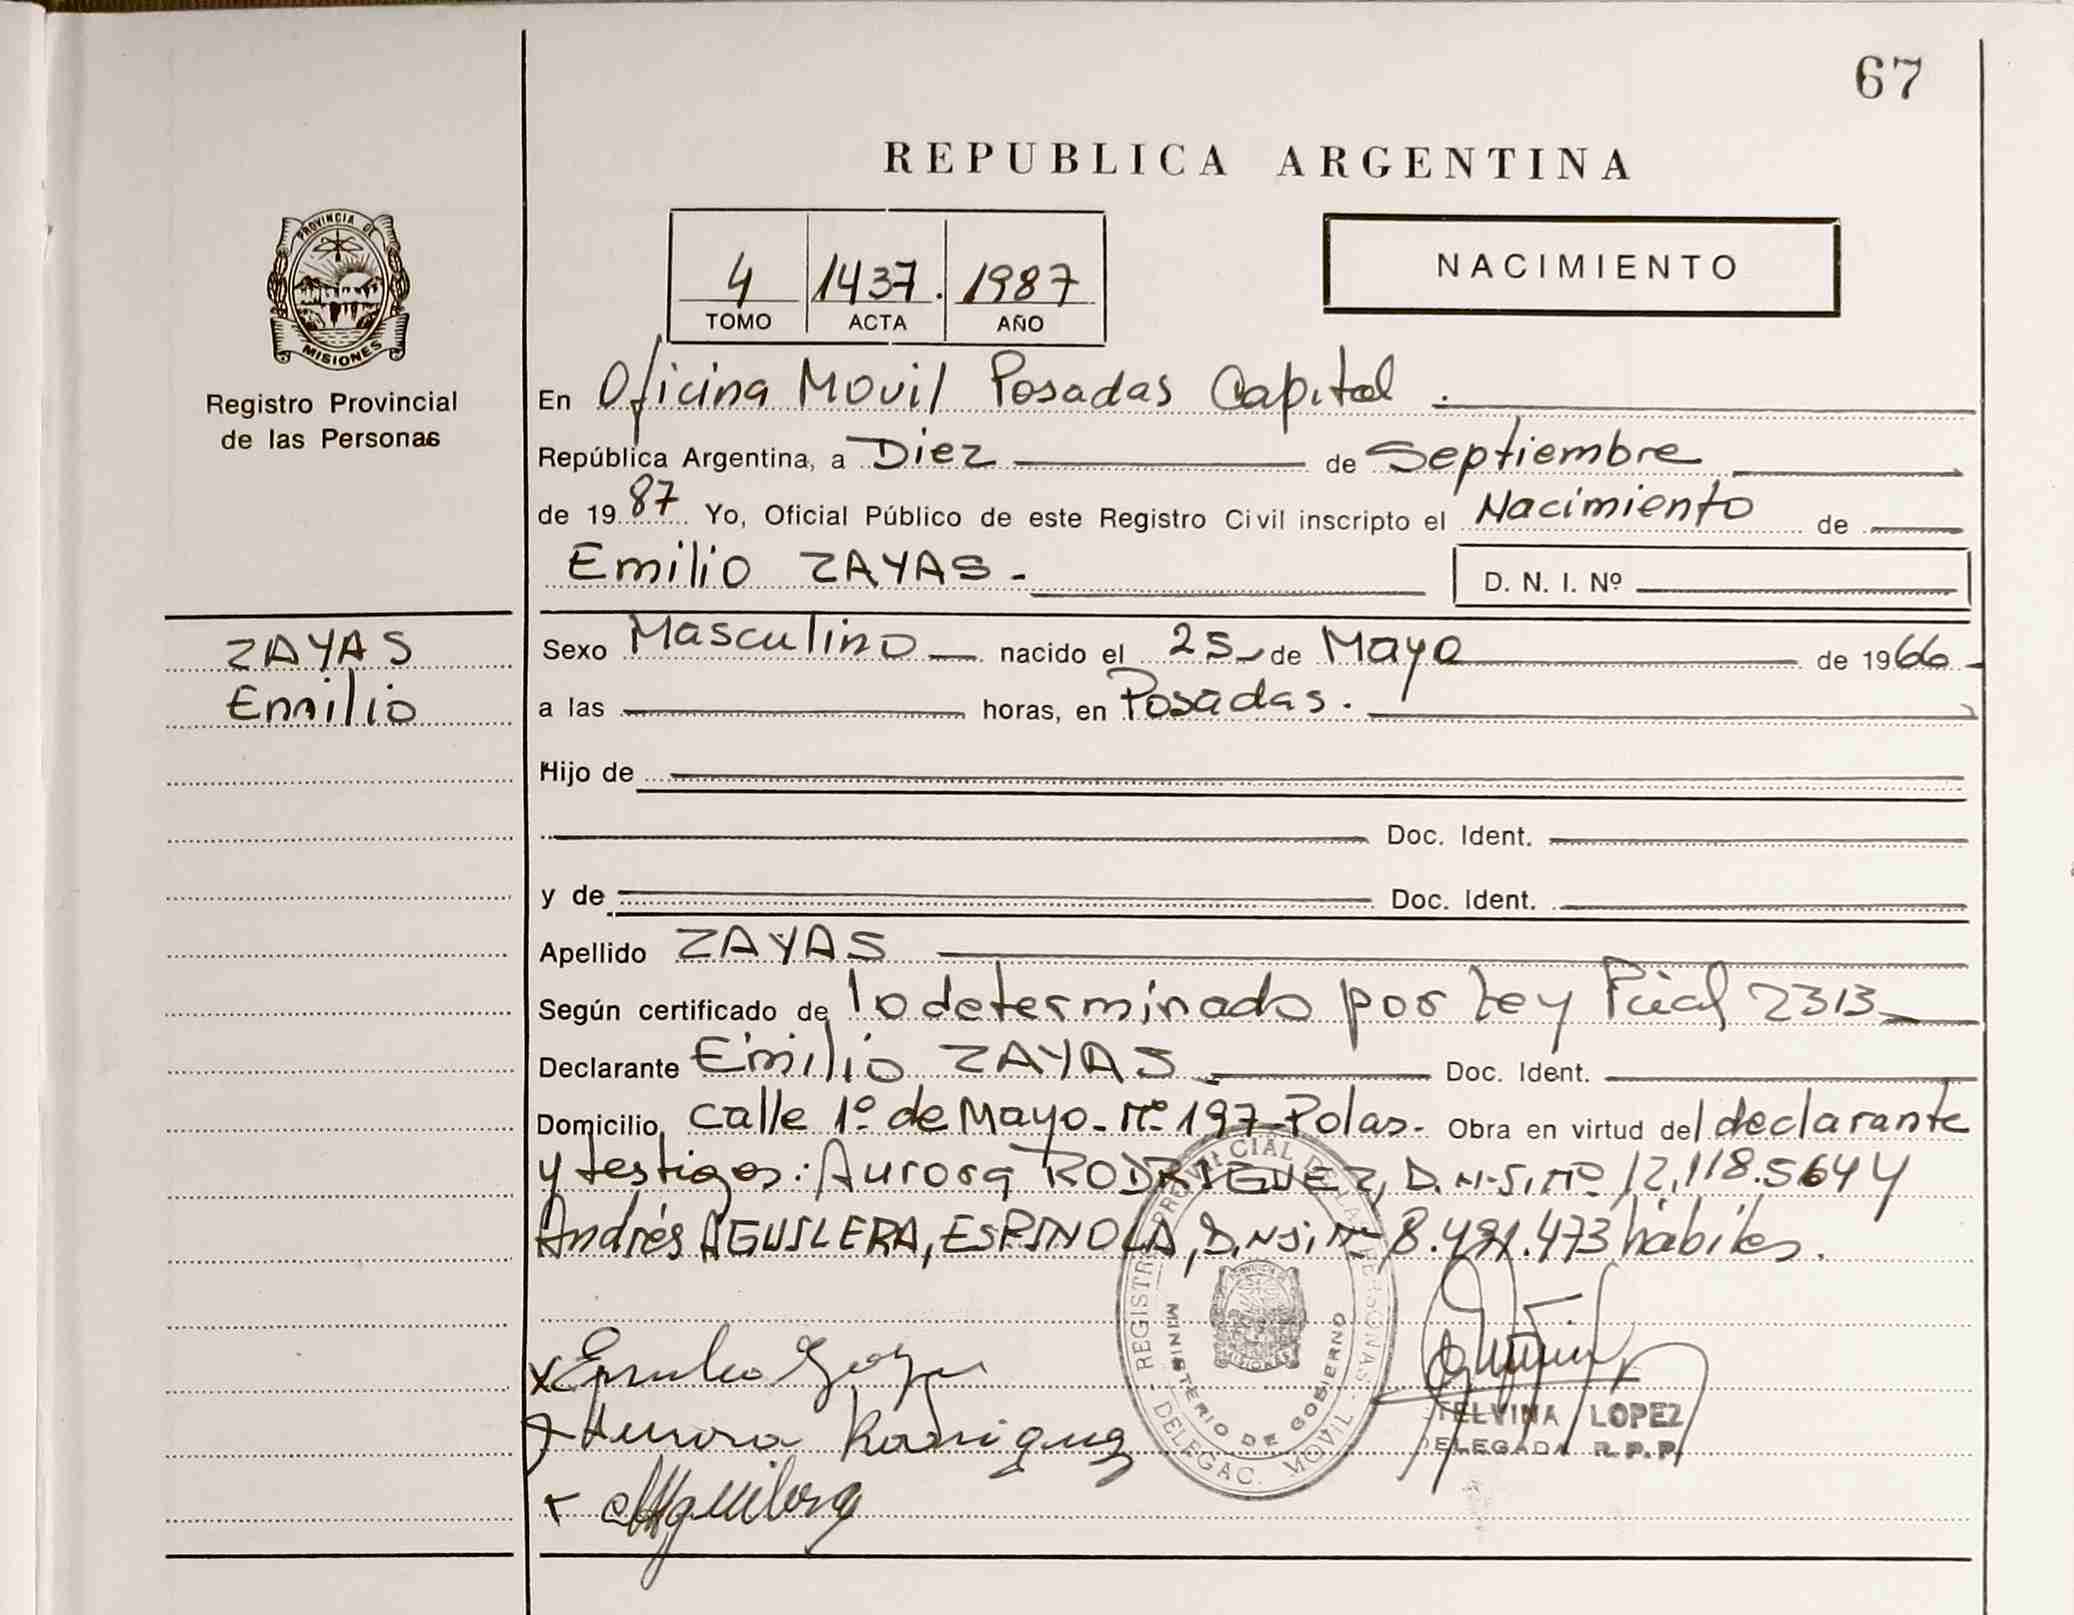 67
REPUBLICA ARGENTINA
PROVINCIA DE
MISIONES
Registro Provincial
de las Personas
4 1437. 1987
TOMO ACTA AÑO
NACIMIENTO
En Oficina Movil Posadas Capital.
República Argentina, a Diez de Septiembre
de 1987 Yo, Oficial Público de este Registro Civil inscripto el Nacimiento de
Emilio ZAYAS - D. N. I. Nº
ZAYAS
Emilio
Sexo Masculino nacido el 25 de Mayo de 1966
a las horas, en Posadas.
Hijo de
Doc. Ident.
y de Doc. Ident.
Apellido ZAYAS
Según certificado de lo determinado por Ley Pcial 2313
Declarante Emilio ZAYAS Doc. Ident.
Domicilio calle 1º de Mayo - Nº 197 - Pdas - Obra en virtud del declarante
y testigos: Aurora RODRIGUEZ, D.N.I, Nº 12.118.564 y
Andrés AGUILERA, ESPINOLA, D.N.I, Nº 8. .473 hábiles.
REGISTRO PROVINCIAL DE LAS PERSONAS
MINISTERIO DE GOBIERNO
DELEGAC. MOVIL
x Emilio Zayas
x Aurora Rodriguez
x Aguilera
TELVINA LOPEZ
DELEGADA R.P.P.